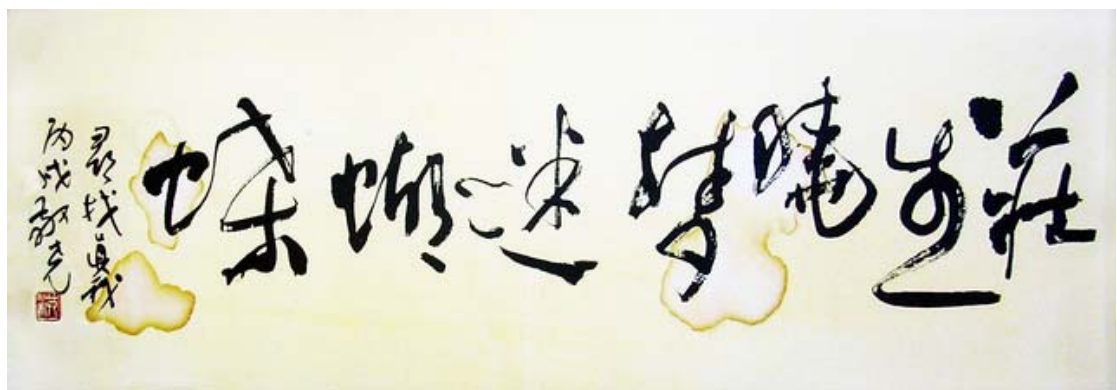 莊生曉夢迷蝴蝶
尋找真我
丙戌